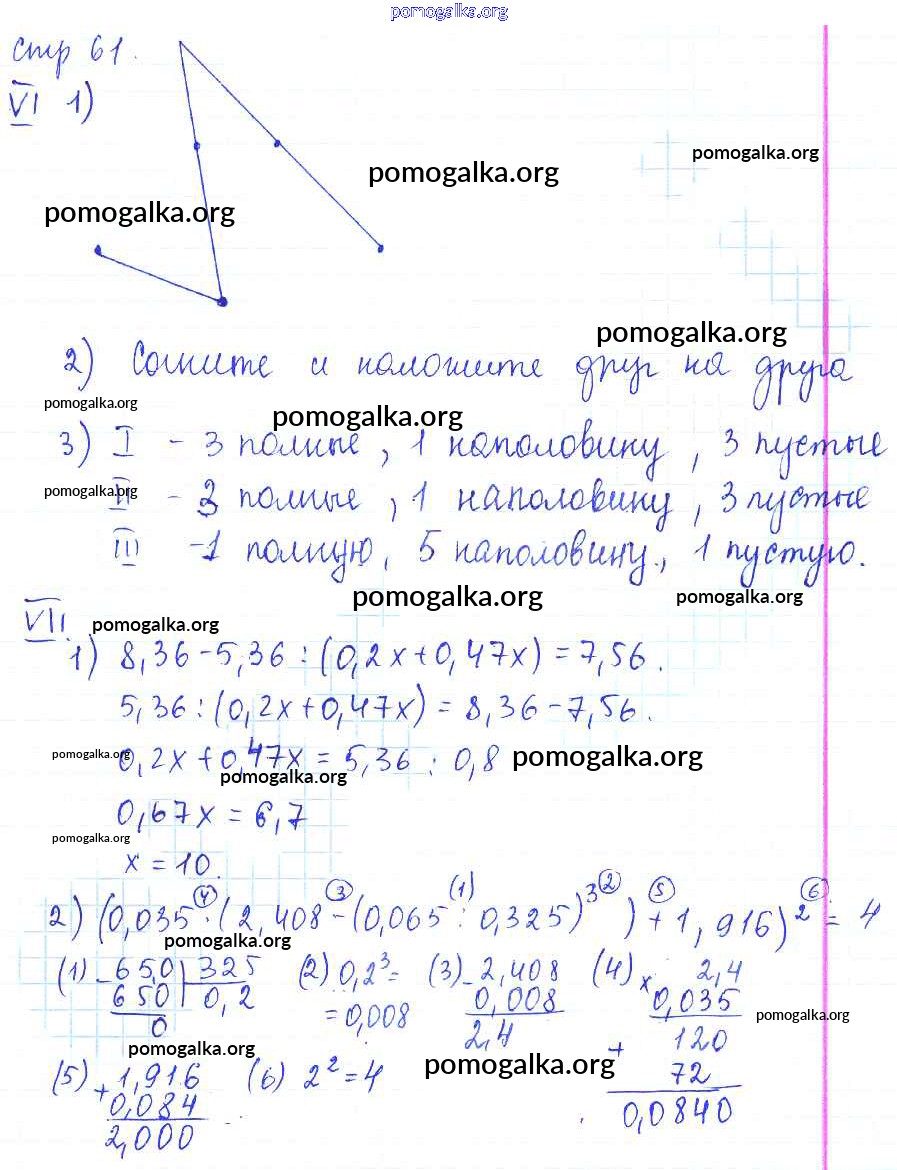 pomogalka.org
стр 61.
VI 1)
pomogalka.org
pomogalka.org
pomogalka.org
pomogalka.org
2) Сомните и наложите друг на друга
pomogalka.org
pomogalka.org
3) I - 3 полные, 1 наполовину, 3 пустые
pomogalka.org
II - 3 полные, 1 наполовину, 3 пустые
III - 1 полную, 5 наполовину, 1 пустую.
pomogalka.org
pomogalka.org
VII.
pomogalka.org
1) 8,36 - 5,36 : (0,2x + 0,47x) = 7,56.
5,36 : (0,2x + 0,47x) = 8,36 - 7,56.
pomogalka.org
0,2x + 0,47x = 5,36 : 0,8
pomogalka.org
pomogalka.org
0,67x = 6,7
pomogalka.org
x = 10.
(4) (3) (1) (2) (5) (6)
2) (0,035 · (2,408 - (0,065 : 0,325)³) + 1,916)² = 4
pomogalka.org
(1) - 65,0 325 (2) 0,2³ = (3) - 2,408 (4) × 2,4
650 0,2 = 0,008 0,008 0,035
0 2,4 120
pomogalka.org
pomogalka.org
+ 72
pomogalka.org
0,0840
(5) + 1,916 (6) 2² = 4
0,084
2,000